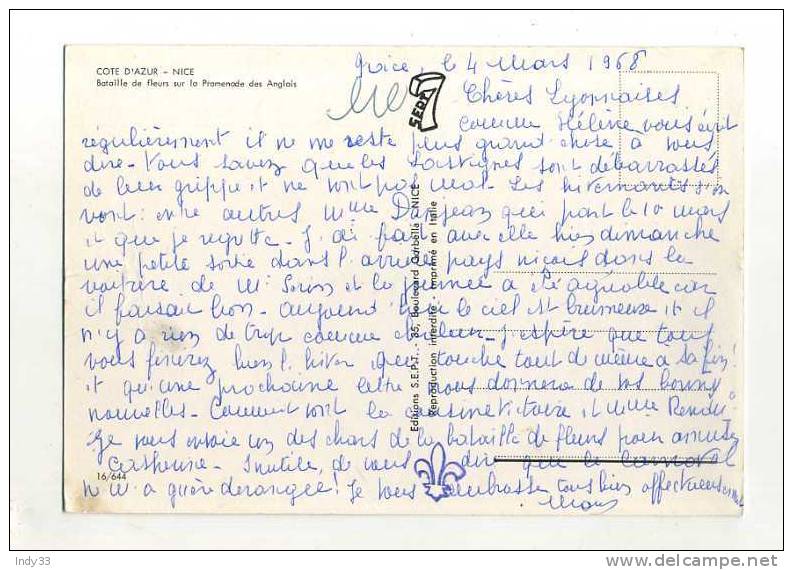 COTE D'AZUR - NICE
Bataille de fleurs sur la Promenade des Anglais
Nice, le 4 Mars 1968
SEPT
Chères Lyonnaises
Comme Hélène vous écrit
régulièrement il ne me reste plus grand chose à vous
dire. Vous savez que les sont débarrassés
de leur grippe et ne vont pas mal. Les hivernants s'en
vont: entre autres Mme qui part le 10 mars
et que je regrette. J'ai fait avec elle hier dimanche
une petite sortie dans l'arrière pays niçois dans la
voiture de M. et la journée a été agréable car
il faisait bon. Aujourd'hui le ciel est brumeux et il
n'y a rien de trop comme chaleur. J'espère que tout
vous finirez bien l'hiver qui touche tout de même à sa fin!
et qu'une prochaine lettre nous donnera de vos bonnes
nouvelles. Comment vont la cousine Victoire et Mme
Je vous envoie un des chars de la bataille de fleurs pour amuser
Catherine. Inutile de vous dire que le carnaval
ne m'a guère dérangée! Je vous embrasse tous bien affectueusement
Editions S.E.P.T. - 35, Boulevard Gorbella - NICE
Reproduction interdite - Imprimé en Italie
16/644
Indy33
http://www.delcampe.net